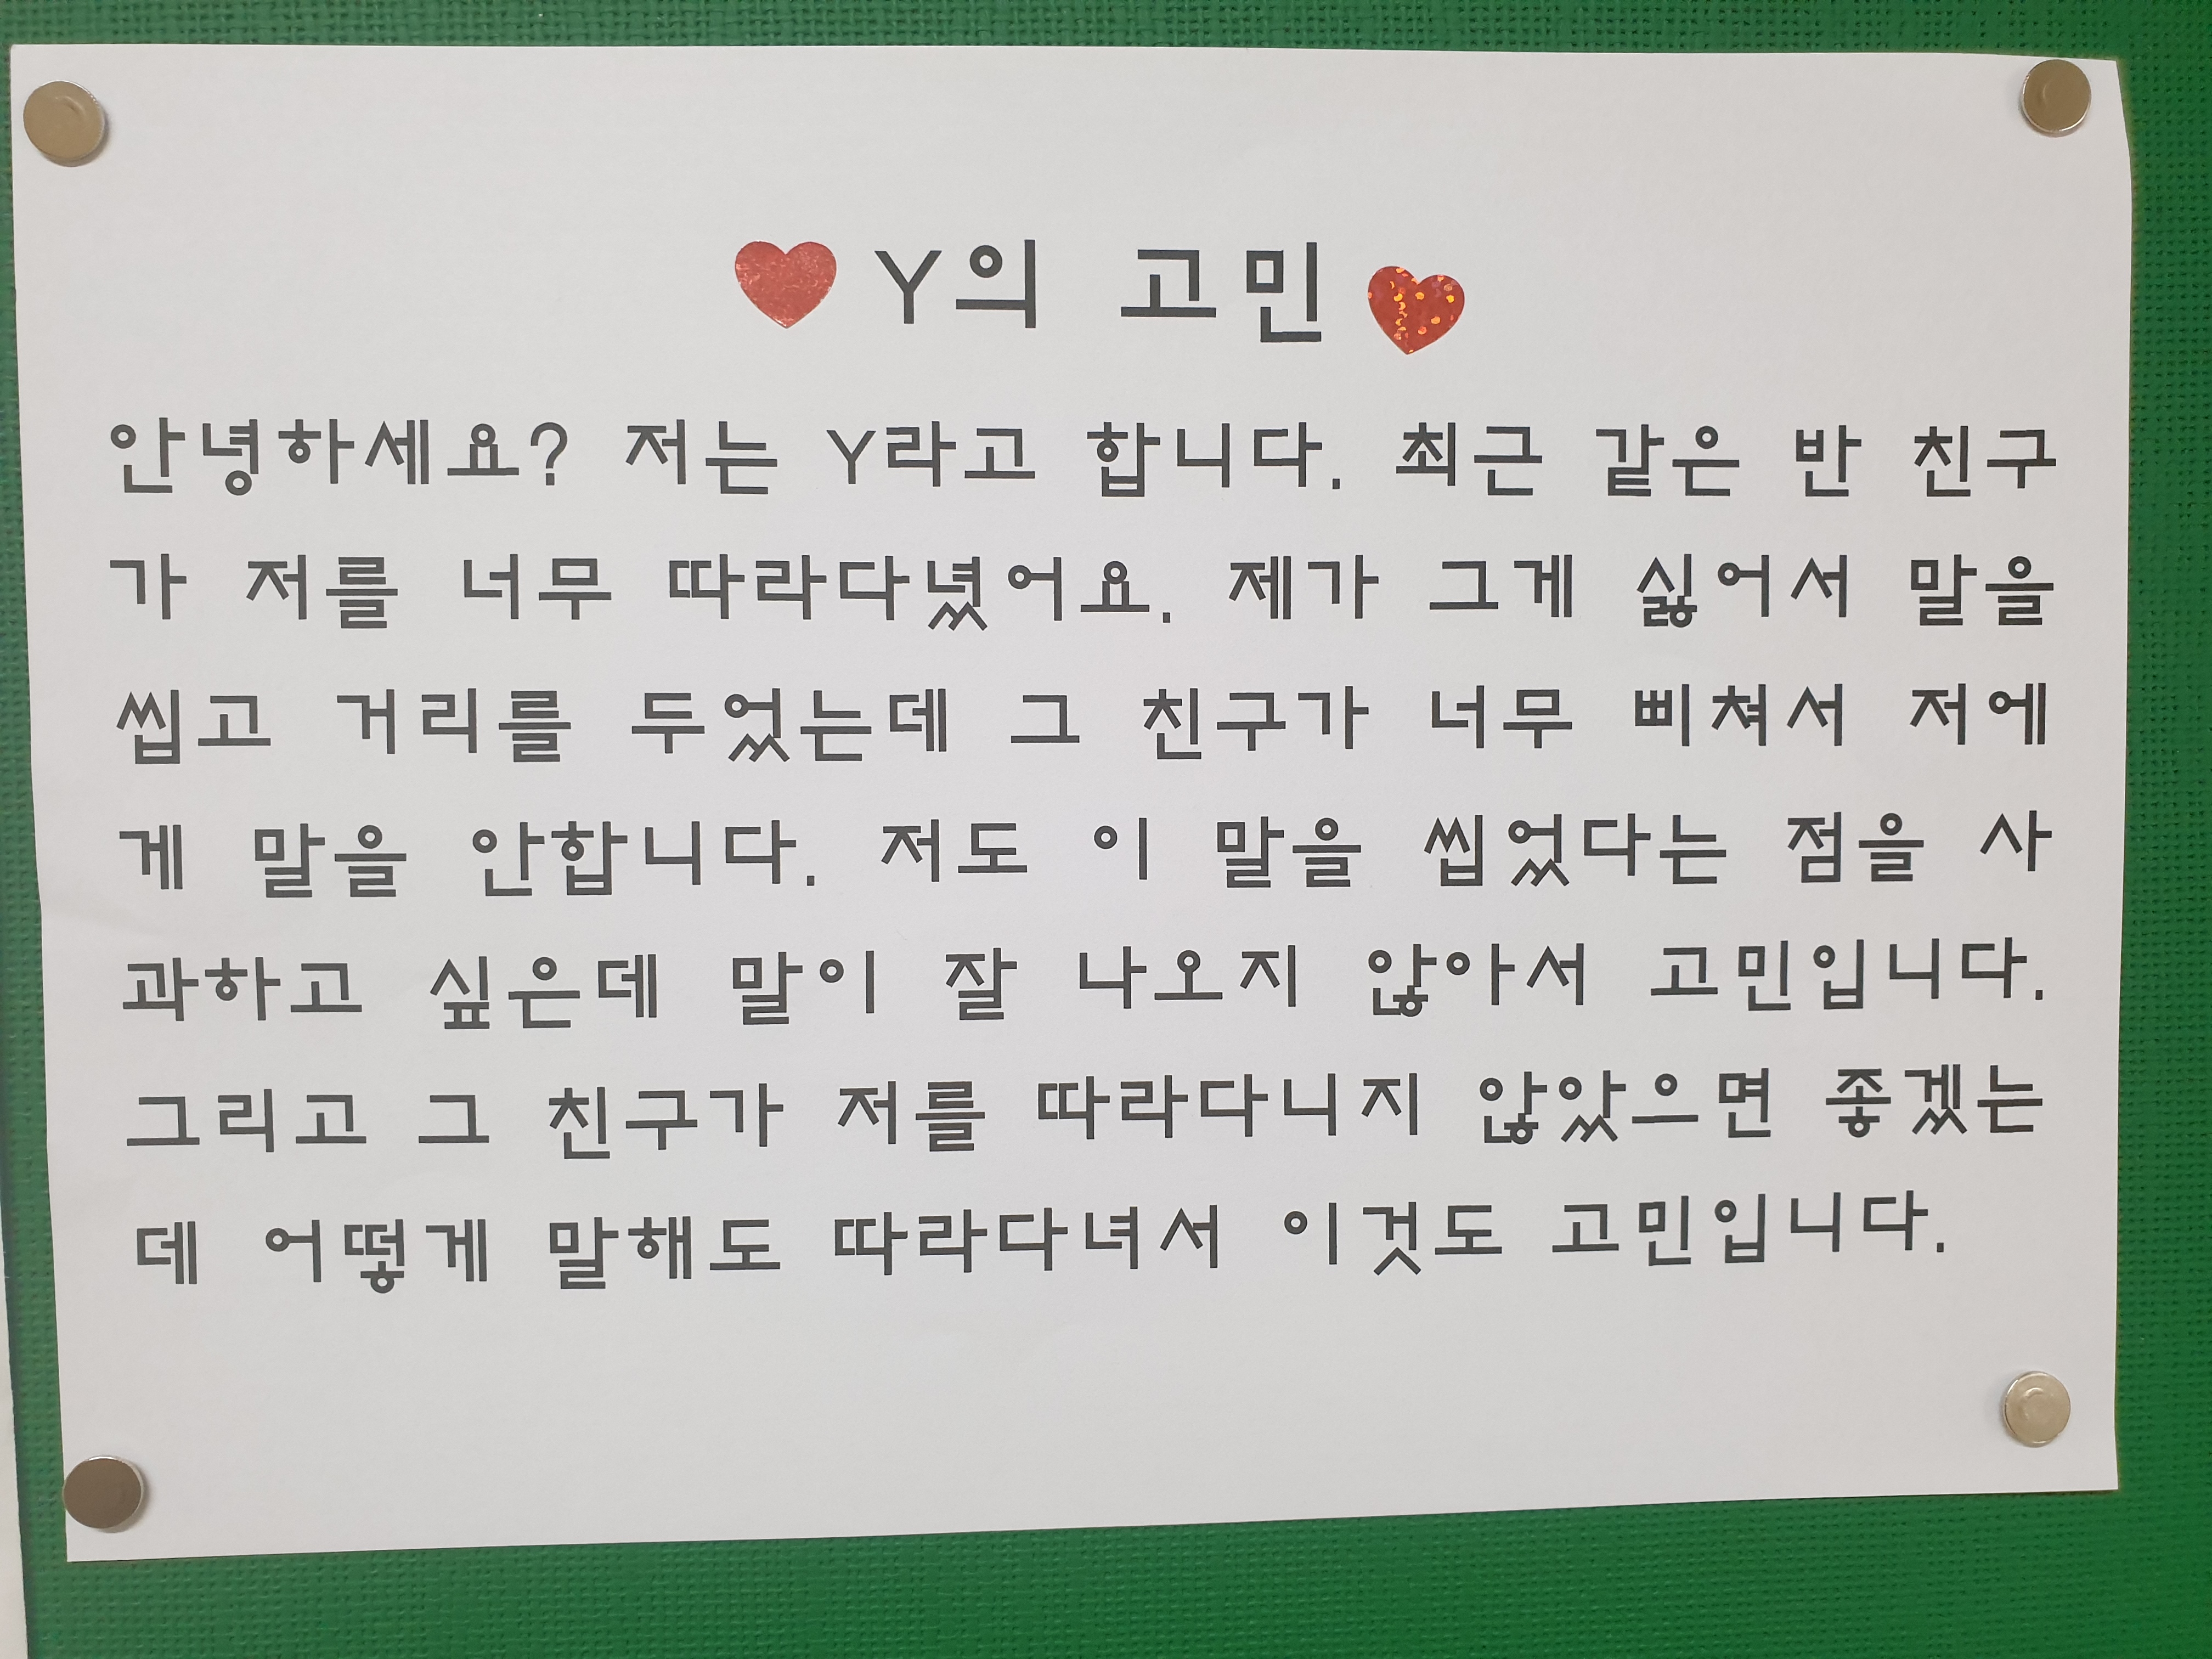 Y의 고민
안녕하세요? 저는 Y라고 합니다. 최근 같은 반 친구
가 저를 너무 따라다녔어요. 제가 그게 싫어서 말을
씹고 거리를 두었는데 그 친구가 너무 삐쳐서 저에
게 말을 안합니다. 저도 이 말을 씹었다는 점을 사
과하고 싶은데 말이 잘 나오지 않아서 고민입니다.
그리고 그 친구가 저를 따라다니지 않았으면 좋겠는
데 어떻게 말해도 따라다녀서 이것도 고민입니다.